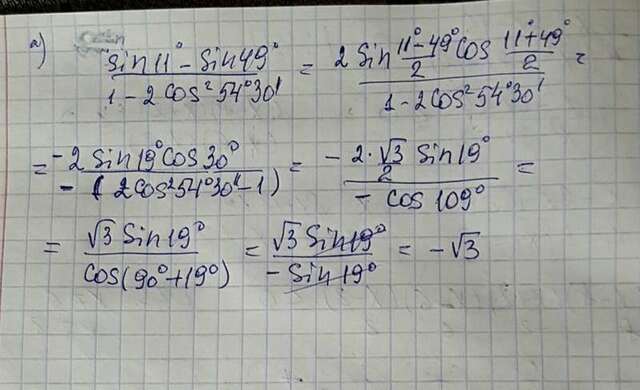 а)
(sin11° - sin49°)/(1 - 2cos²54°30') = (2 sin (11°-49°)/2 cos (11°+49°)/2)/(1 - 2cos²54°30') =
= (-2 sin19° cos30°)/(-(2cos²54°30' - 1)) = (-2·√3/2 sin19°)/(-cos109°) =
= (√3 sin19°)/(cos(90°+19°)) = (√3 sin19°)/(-sin19°) = -√3